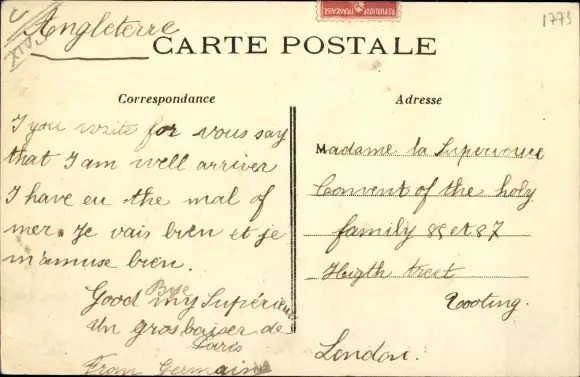 Angleterre
1773
REPUBLIQUE FRANCAISE
CARTE POSTALE
Correspondance
I you write for vous say
that I am well arriver
I have eu the mal of
mer. Je vais bien et je
m'amuse bien.
Good Bye my Supérieure
Un gros baiser de
Paris
From Germaine
Adresse
Madame la Superieure
Convent of the holy
family 85 et 87
Higth treet
Tooting.
London.